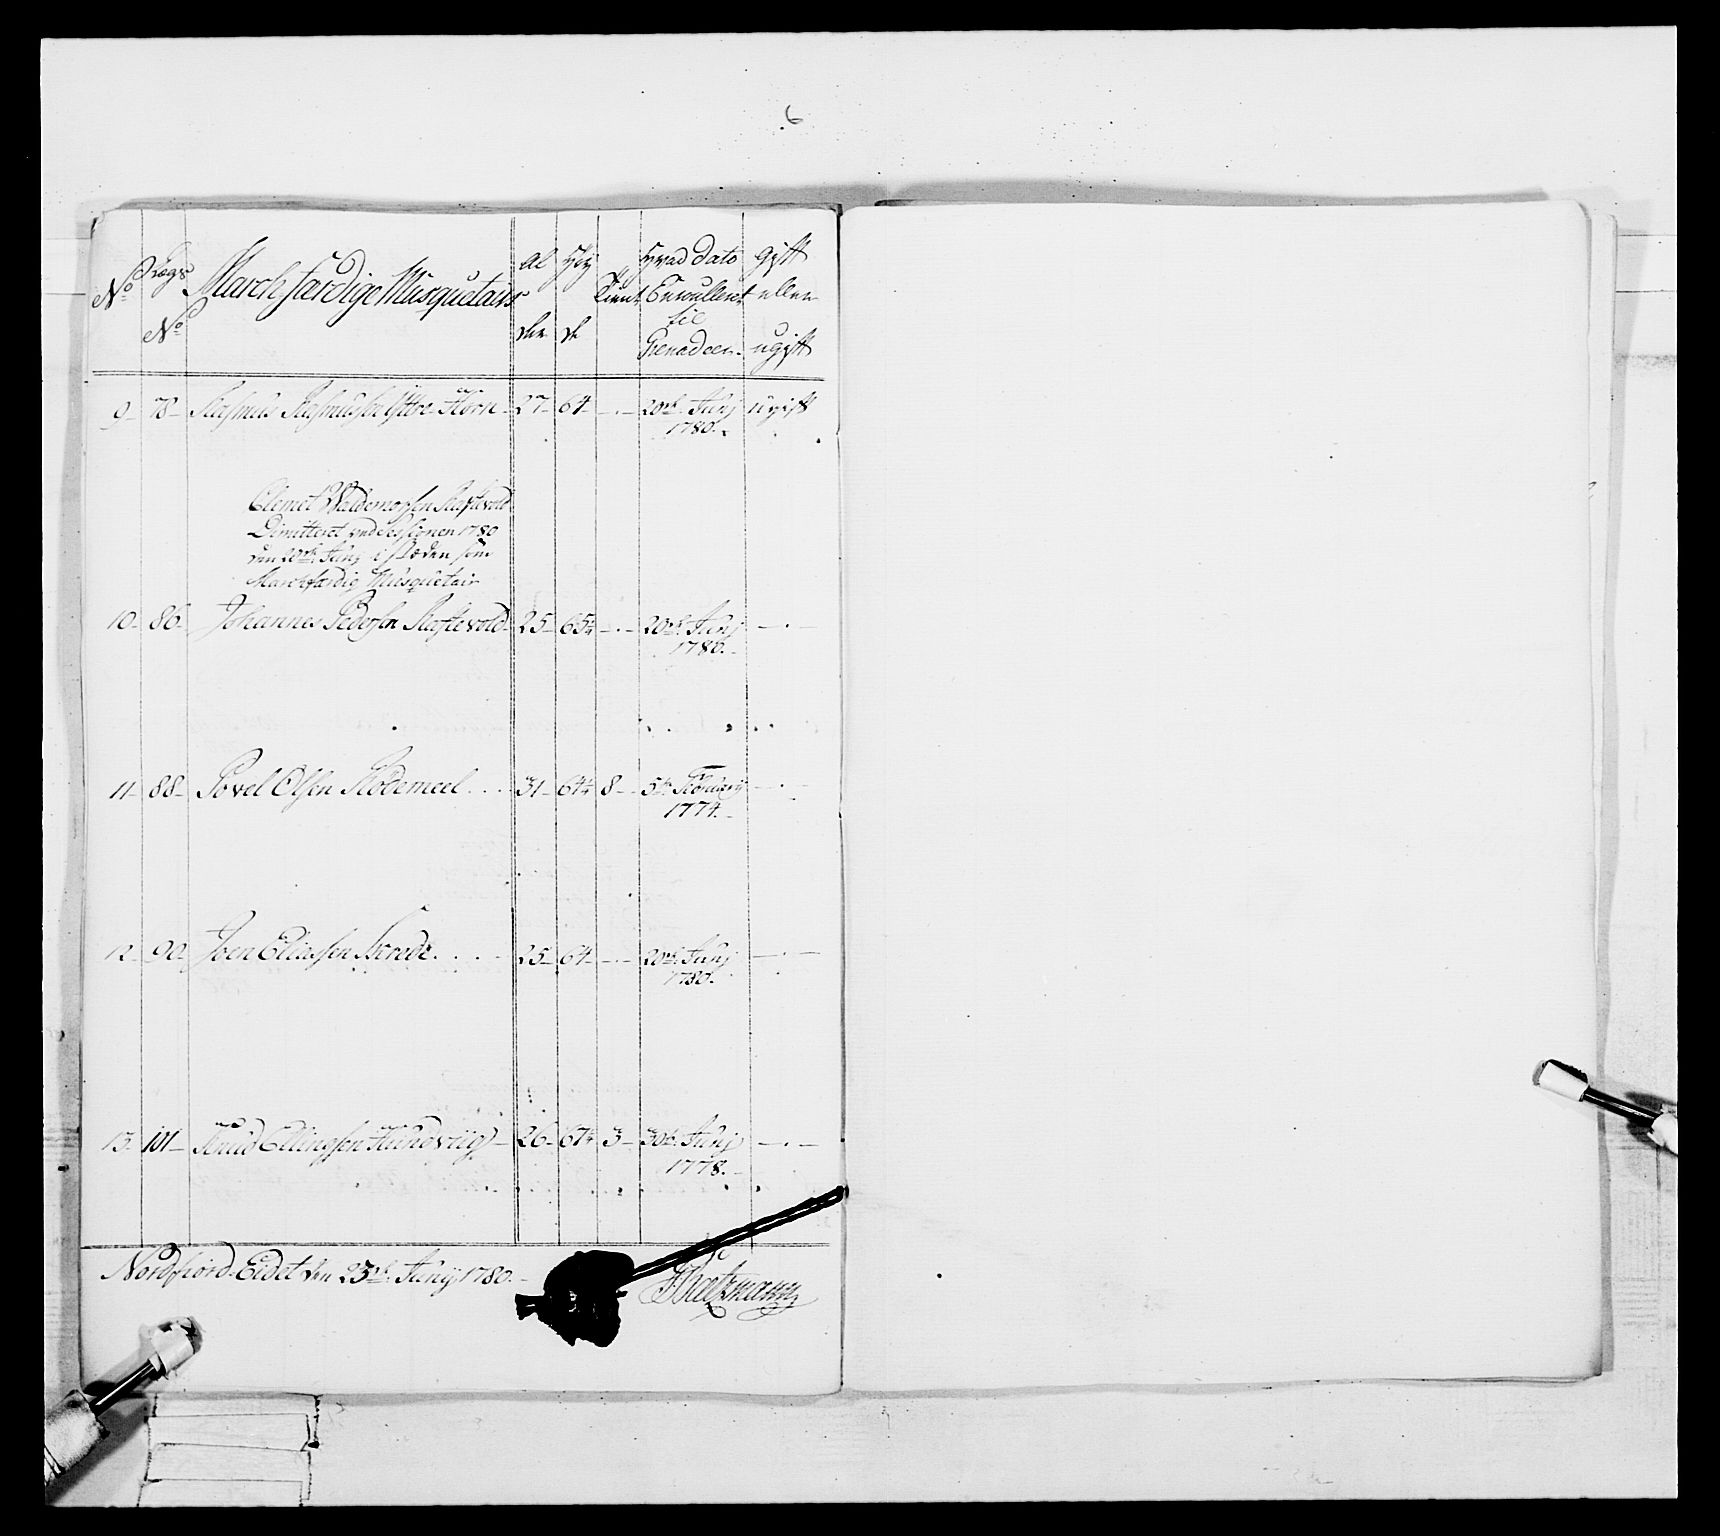 6
No Lægs No March færdige Musquetairs Al der Høy de Tient Hvad Dato Enroulleret til Grenadeer gift eller ugift
9 78 Rasmus Rasmusen Ystre Hörn 27 64 20de Junj 1780. ugift
Clemet Waldemorsen Raftevold
Dimitteret ved Sessionen 1780
den 20de Junj i stæden som
Marchfærdig Musquetair
10 86 Johannes Pedersen Raftevold 25 65¼ 20de Junj 1780.
11 88 Povel Olsen Rödemeel 31 64¼ 8 5te Febuarij 1774.
12 90 Joen Eliassen Skrede 25 64 20de Junj 1780.
13 101 Knud Ellingsen Hundviig 26 67¼ 3 30te Junj 1778.
Nordfiord Eidet den 23de Junij 1780.